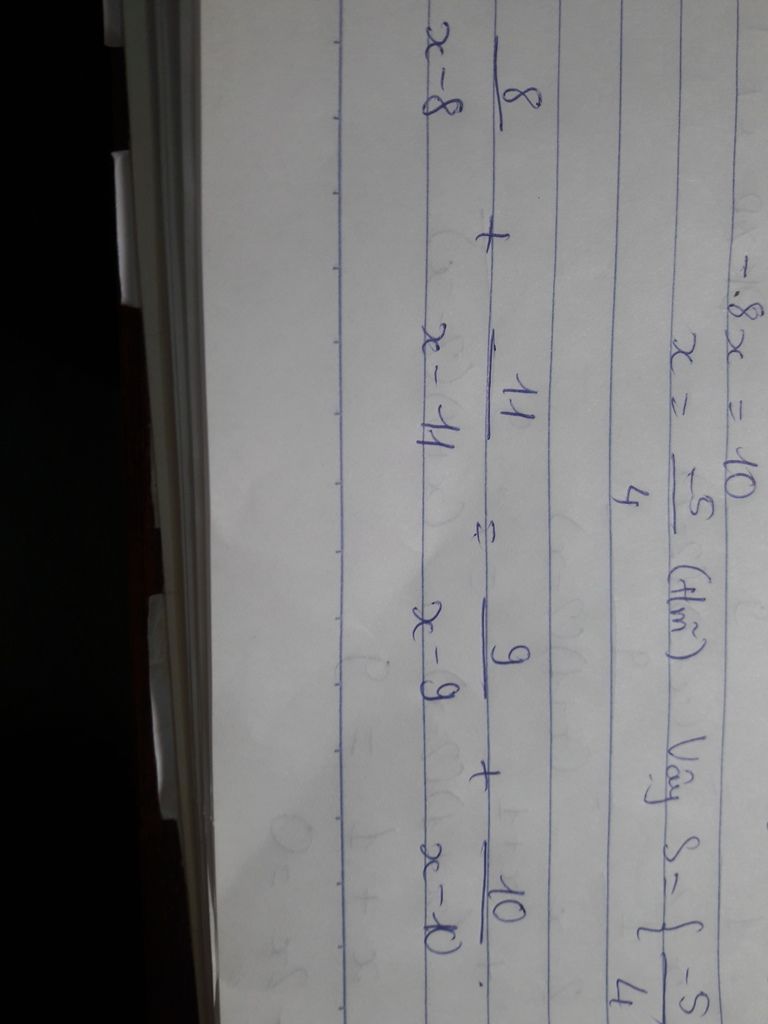 - 8x = 10
x = -5/4 (t/m) Vậy S = { -5/4
8/(x-8) + 11/(x-11) = 9/(x-9) + 10/(x-10)